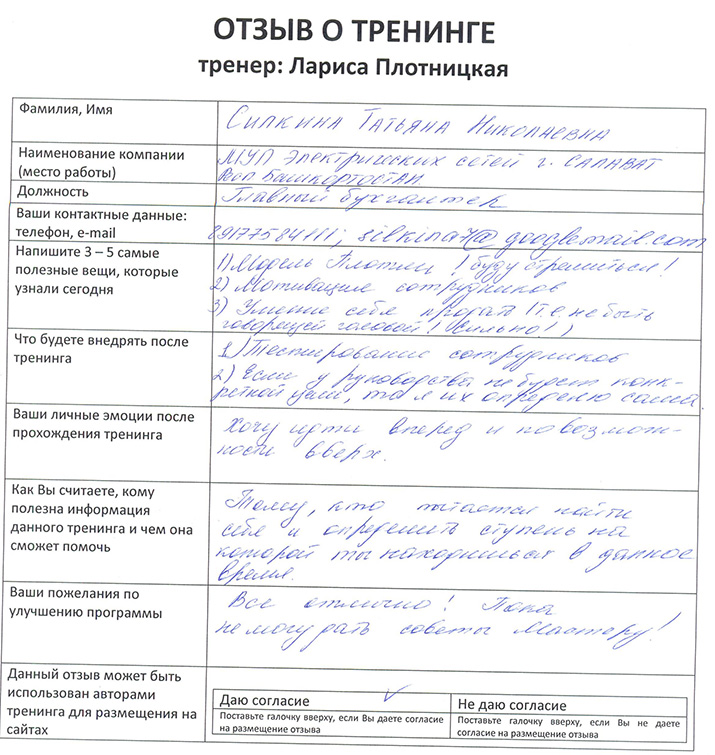 ОТЗЫВ О ТРЕНИНГЕ
тренер: Лариса Плотницкая
Фамилия, Имя
Силкина Татьяна Николаевна
Наименование компании
(место работы)
МУП Электрических сетей г. Салават
Респ Башкортостан.
Должность
Главный бухгалтер
Ваши контактные данные:
телефон, e-mail
89177584111; silkinat@googlemail.com
Напишите 3 – 5 самые
полезные вещи, которые
узнали сегодня
1) Модель ! буду стремиться!
2) Мотивация сотрудников
3) Умение себя продать (т.е. не быть
говорящей головой! Сильно!)
Что будете внедрять после
тренинга
1) Тестирование сотрудников
2) Если у руководства не будет конк-
ретной цели, то я их определю сама
Ваши личные эмоции после
прохождения тренинга
Хочу идти вперед и по возмож-
ности вверх.
Как Вы считаете, кому
полезна информация
данного тренинга и чем она
сможет помочь
Тому, кто пытается найти
себя и определить ступень на
которой ты находишься в данное
время.
Ваши пожелания по
улучшению программы
Все отлично! Пока
не могу дать советы Мастеру!
Данный отзыв может быть
использован авторами
тренинга для размещения на
сайтах
Даю согласие ✓
Поставьте галочку вверху, если Вы даете согласие
на размещение отзыва
Не даю согласие
Поставьте галочку вверху, если Вы не даете
согласие на размещение отзыва